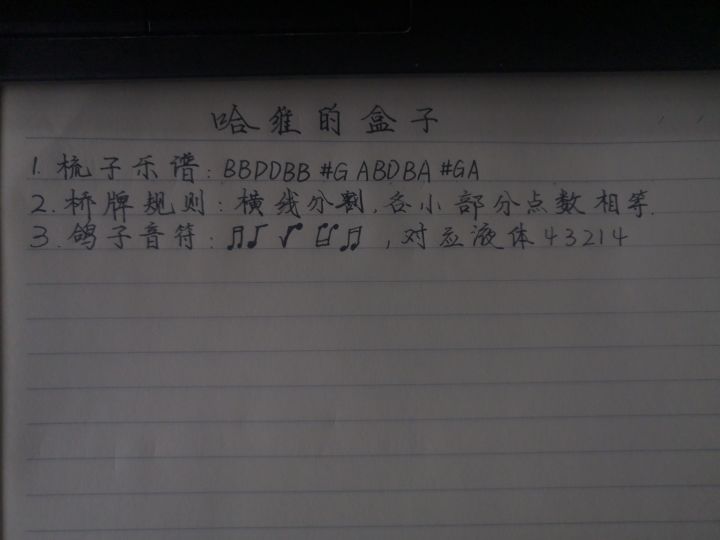 哈维的盒子
1. 梳子乐谱: BBDDBB #G ABDBA #GA
2. 桥牌规则: 横线分割, 各小部分点数相等.
3. 鸽子音符: ♫♩ ♪ ♫♫ , 对应液体 43214